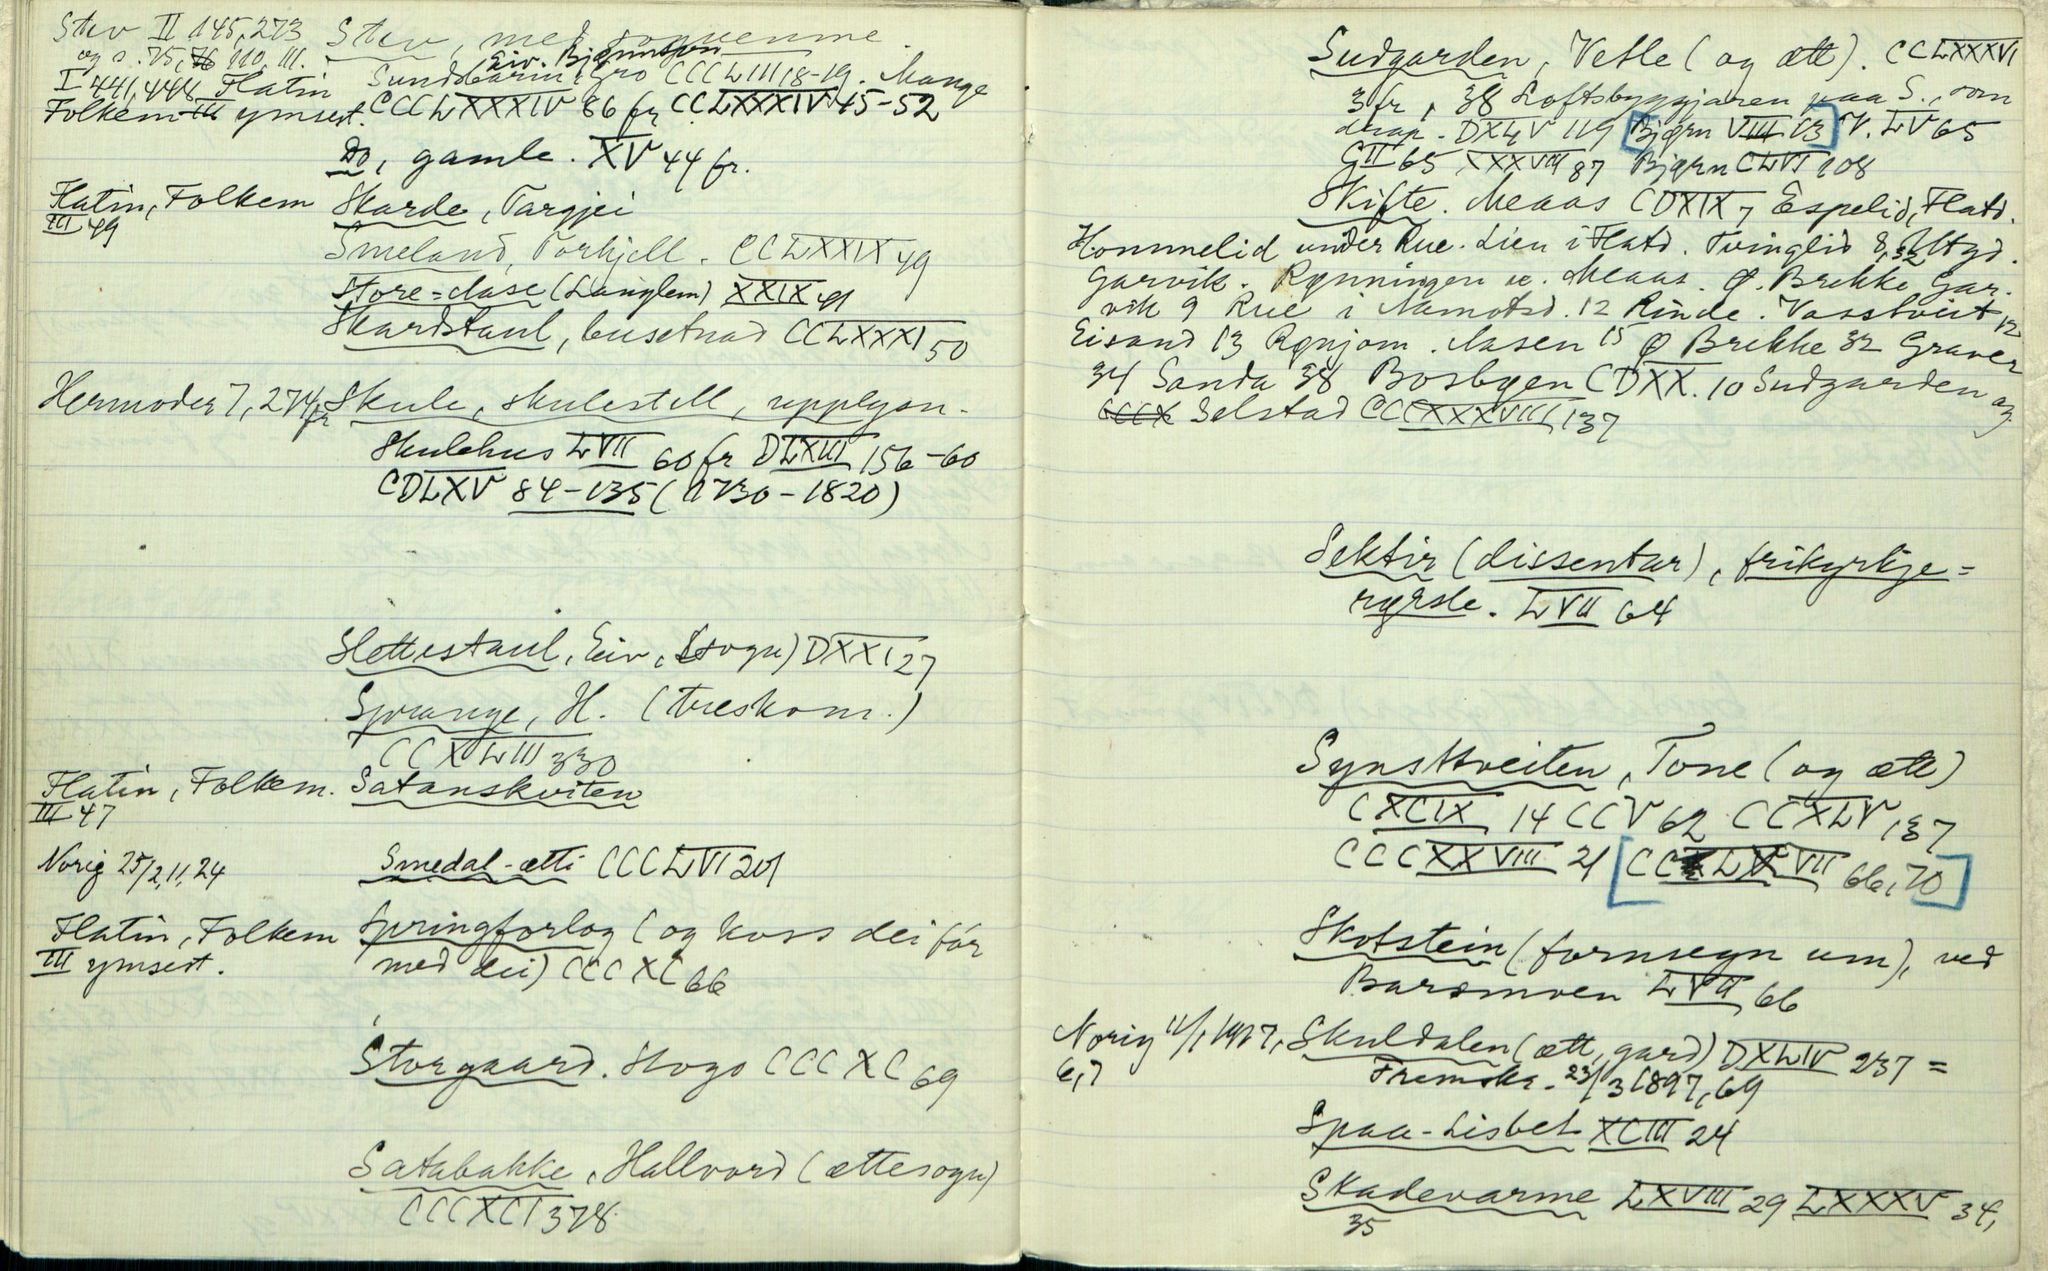 Stev II 145, 273 Stev, med
og s. 75, 76 110, III. Eiv. Bjønnspon
I 441, 444 Flatin Sundsbarm i Gro CCCLIII 18-19. Mange
Folkem III ymsest. CCCLXXXIV 86 fr CCLXXXIV 45-52
Do, gamle. XV 44 fr.
Flatin, Folkem Skarde, Targjei
III 49
Smeland, Torkjell. CCLXXIX 49
Store-Clase (Langlem) XXIX 41
Skardstaul, busetnad CCLXXXI 50
Hermoder 7, 274 fr Skule, skulestell, upplysn.
Skulehus LVII 60 fr DLXIII 156-60
CDLXV 84-135 (1730-1820)
Slettestaul, Eiv, (sogn) DXXI 27
Sprange, H. (treskom.)
CCXLIII 330
Flatin, Folkem. Satanskviten
III 47
Norig 25/2, 11, 24 Smedal-ætti CCCLVI 201
Flatin, Folkem Springforlog (og koss dei fór
III ymsest. med dei) CCCXC 66
Storgaard. Skogo CCCXC 69
Satabakke, Hallvord (ættesogn)
CCCXCI 378
Sudgarden, Vetle (og ætt). CCLXXXVI
3 fr, 38 Loftsbyggjaren paa S., som
drap. DXLV 119 [Bjørn VIII 13] V. LV 65
GII 65 XXXVIII 87 Bjørn CLVI 108
Skifte. Meaas CDXIX 7 Espelid, Flatd.
Hommelid under Rue. Lien i Flatd. Tvinglid 8, 32 Utgd.
Garvik. Rønningen u. Meaas. Ø. Brekke Gar-
vik 9 Rue i Aamotsd. 12 Rinde. Vasstveit 12
Eisand 13 Rønjom. Aasen 15 Ø Brekke 32 Graver
34 Sanda 38 Bosbøen CDXX. 10 Sudgarden og
CCCX Selstad CCCXXXVIII 137
Sektir (dissentar), frikyrkje-
rørsle. LVII 64
Synstveiten, Tone (og ætt)
CXCIX 14 CCV 62 CCXLV 137
CCCXXVIII 21 [CCLXVII 66, 70]
Skotstein (fornsegn um), ved
Barsmoen LVII 66
Norig 11/1 1917, Skuldalen (ætt, gard) DXLIV 237 =
6, 7 Fremskr. 23/3 1897, 69
Spaa-Lisbet XCIII 24
Skadevarme LXVIII 29 LXXXV 34,
35